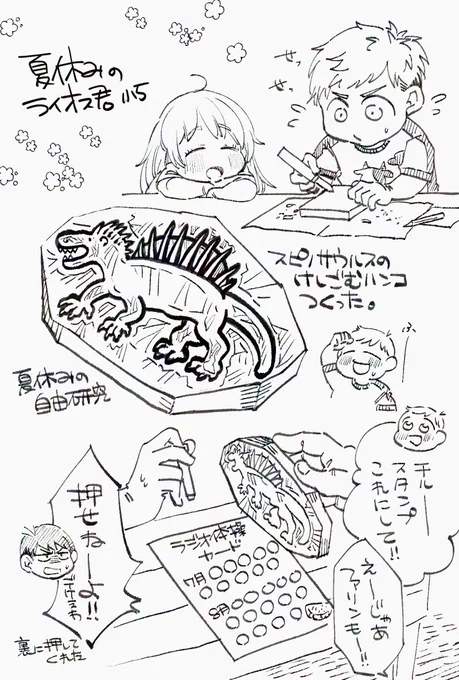 夏休みの
ライオス君 11才
せっ
せっ
スピノサウルスの
けしごむハンコ
つくった。
ふぅ
夏休みの
自由研究
チルー
スタンプ
これにして!!
えーじゃあ
ファリンもー!!
押せねーよ!!
でけぇわ
ラジオ体操
カード
7月
8月
裏に押して
くれた